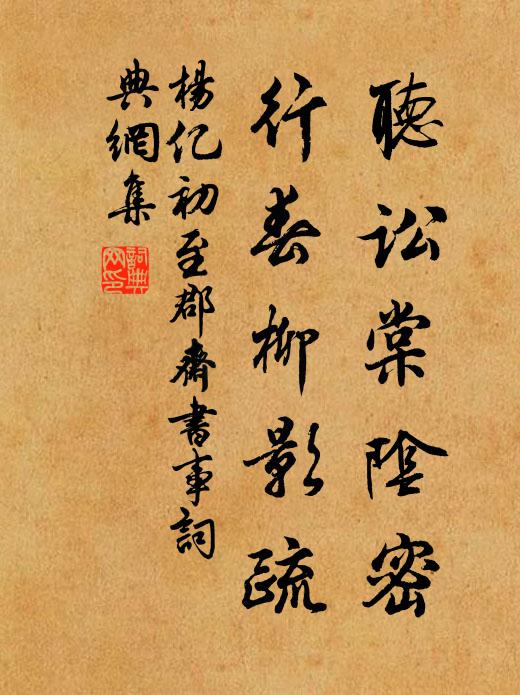 聽訟棠陰密
行春柳影疏
楊亿初至郡齋書事詞
典網集
詞典
网印